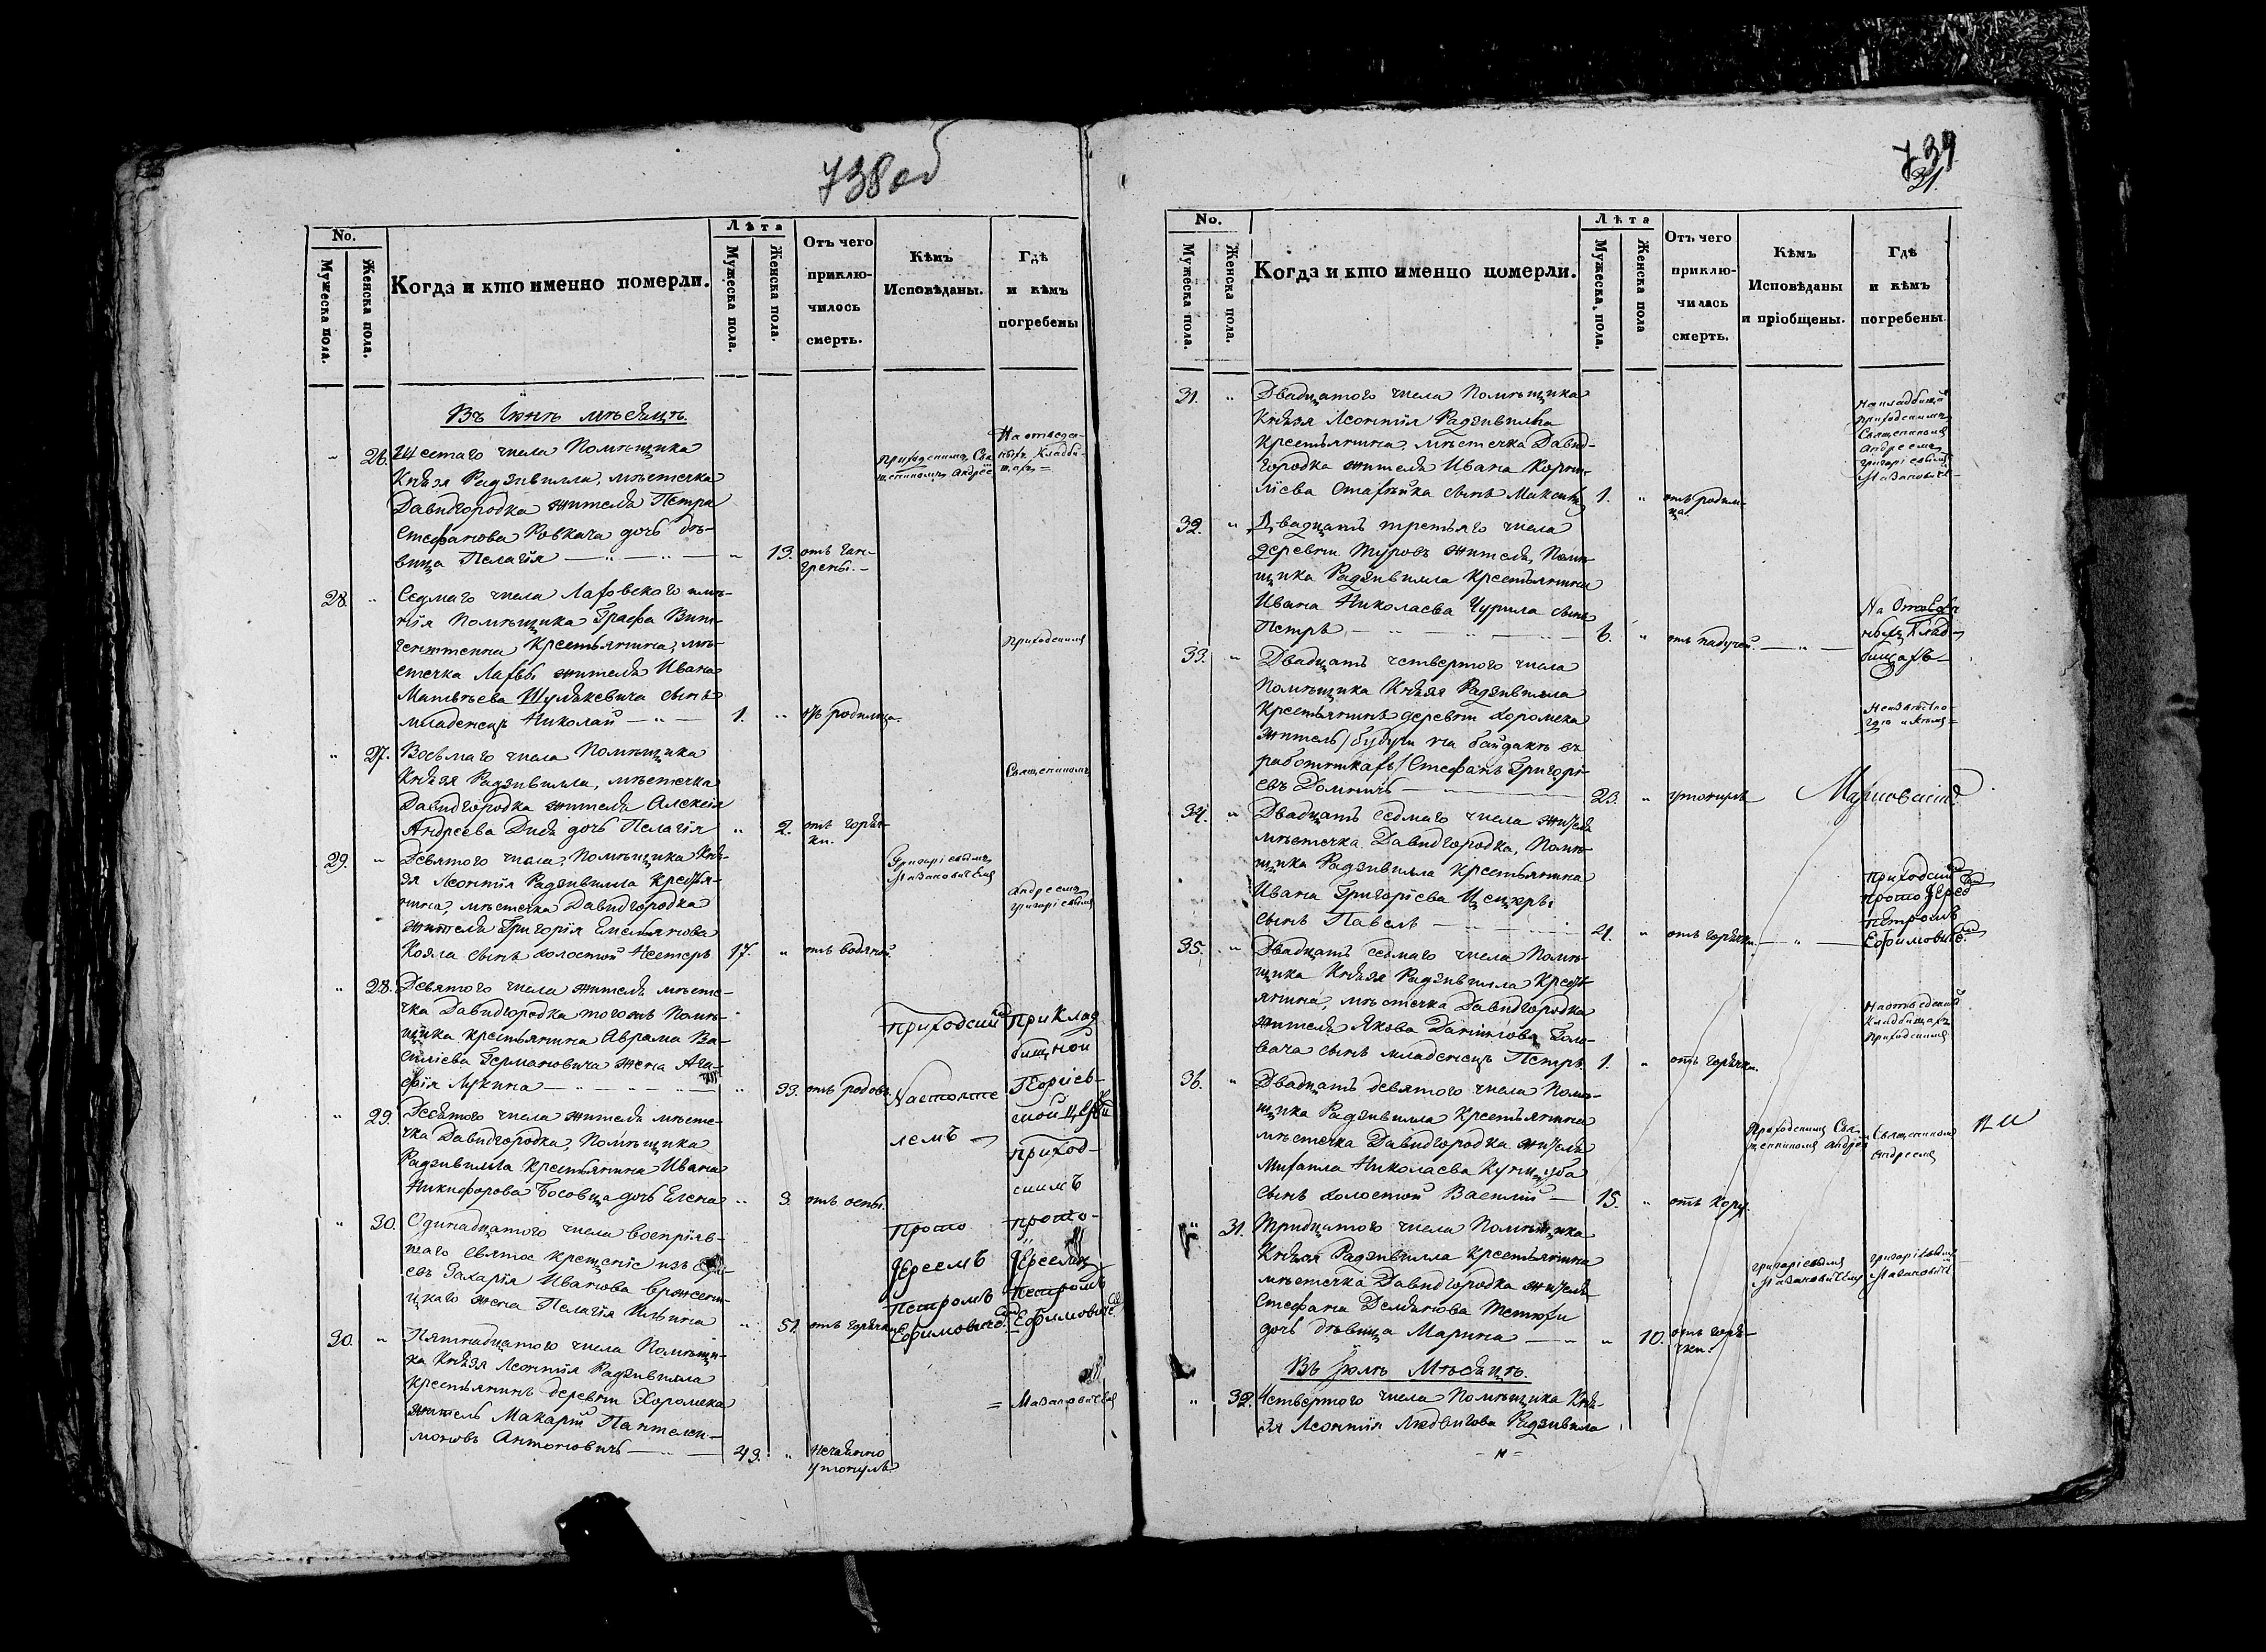 738 об
No.
Мужеска пола.
Женска пола.
Когда и кто именно померли.
Лѣта
Мужеска пола.
Женска пола.
Отъ чего приклю-
чилось
смерть.
Кѣмъ
Исповѣданы.
Гдѣ
и кѣмъ
погребены
Въ Іюнѣ мѣсяцѣ.
" 26. Шестаго числа Помѣщика
Князя Радзивилла, мѣстечка
Давидгородка жителя Петра
Стефанова Ровкача дочь дѣ-
вица Пелагія — " — " 13. отъ ган-
грены. —
Приходскимъ Свя-
щенникомъ Андрее
На отведен-
ныхъ кладби-
щахъ =
28. " Седмаго числа Лахвского имѣ-
нія Помѣщика Графа Вит-
генштейна Крестьянина, мѣ-
стечка Лахвы жителя Ивана
Матвѣева Шулякевича сынъ
младенецъ Николай — " — 1. " отъ родимца.
Приходскимъ
" 27. Восьмаго числа Помѣщика
Князя Радзивилла, мѣстечка
Давидгородка жителя Алексѣя
Андреева Дидя дочь Пелагія " 2. отъ горяч-
ки.
Священникомъ
29. " Девятого числа Помѣщика Кня-
зя Леонтія Радзивилла Крестья-
нина, мѣстечка Давидгородка
жителя Григорія Емельянова
Кояла сынъ холостой Нестеръ 17. " отъ водяной.
Григоріевымъ
Мазановичемъ
Андреемъ
Григоріевымъ
" 28. Девятого числа жителя мѣсте-
чка Давидгородка того жъ Помѣ-
щика крестьянина Аврама Ва-
силіева Германовича жена Ага-
фія Лукина — " 33. отъ родовъ.
Приходскимъ
Настояте
лемъ
При Клад
бищной
Георгіев-
ской церкви
приход-
скимъ
" 29. Десятого числа жителя мѣсте-
чка Давидгородка, Помѣщика
Радзивилла крестьянина Ивана
Никифорова Босовца дочь Елена " 3. отъ оспы.
" 30. Одинадцатого числа воспріяв-
шаго святое крещеніе изъ Евре-
евъ Захарія Иванова
жена Пелагія Ильина " 51. отъ горячки
Прото
Іереемъ
Петромъ
Ефимовичемъ
прото-
Іереемъ
Петромъ
Ефимовичемъ
30. " Пятнадцатого числа Помѣщи-
ка Князя Леонтія Радзивилла
Крестьянинъ деревни Хоромска
житель Макарій Пантелеи-
моновъ Антоновичъ — " — 43. " нечаянно
утонулъ
= Мазановичемъ
739
31.
No.
Мужеска пола.
Женска пола.
Когда и кто именно померли.
Лѣта
Мужеска пола.
Женска пола
Отъ чего
приклю-
чилась
смерть.
Кѣмъ
Исповѣданы
и пріобщены.
Гдѣ
и кѣмъ
погребены
31. " Двадцатого числа Помѣщика
Князя Леонтія Радзивилла
Крестьянина, мѣстечка Давид-
городка жителя Ивана Корни-
ліева сынъ Максимъ 1. " отъ родим-
ца.
На кладбищѣ
приходскимъ
Священникомъ
Андреемъ
Григоріевымъ
Мазановичемъ
32. " Двадцать третьяго числа
деревни Туровъ жителя, Помѣ-
щика Радзивилла Крестьянина
Ивана Николаева Чурила сынъ
Петръ — " — 6. " отъ падучей. — " —
На Отведен
ныхъ клад-
бищахъ —
33. " Двадцать четвертого числа
Помѣщика Князя Радзивилла
Крестьянинъ деревни Хоромска
житель /будучи на байдакѣ въ
работникахъ/ Стефанъ Григорі-
евъ 23. " утонулъ
Неизвѣстно
гдѣ и кѣмъ =
34. " Двадцать седмаго числа жителя
мѣстечка Давидгородка, Помѣ-
щика Радзивилла крестьянина
Ивана Григоріева
сынъ Павелъ — 4. " отъ горячки. — " —
приходскимъ
протоіерее
Петромъ
Ефимовиче.
35. " Двадцать седмаго числа Помѣ-
щика Князя Радзивилла Кресть
янина, мѣстечка Давидгородка
жителя Якова Данилова Голо-
вача сынъ младенецъ Петръ 1. " отъ горячки.
На отведенныхъ
Кладбищахъ
Приходскимъ
36. " Двадцать девятого числа Помѣ-
щика Радзивилла Крестьянина
мѣстечка Давидгородка жителя
Михаила Николаева
сынъ холостой Василій — 15. " отъ кору.
Приходскимъ Свя-
щенникомъ Андрее
Священникомъ
Андреемъ
" 31. Тридцатого числа Помѣщика
Князя Радзивилла Крестьянина
мѣстечка Давидгородка жителя
Стефана Демьянова Тетюхи
дочь дѣвица Марина — " 10. отъ горя-
чки.
Григоріевымъ
Мазановичемъ
Григоріевымъ
Мазановиче
Въ Іюлѣ Мѣсяцѣ.
" 32. Четвертого числа Помѣщика Кня-
зя Леонтія Людвигова Радзивилла